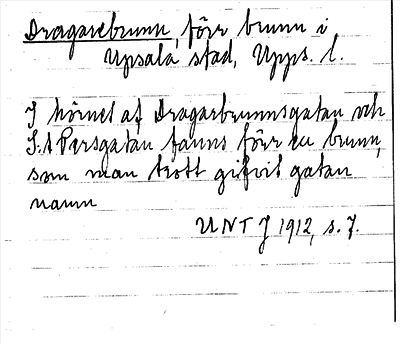 Dragarebrunn, förr brunn i
Upsala stad, Upps. l.
I hörnet af Dragarbrunnsgatan och
S:t Persgatan fanns förr en brunn,
som man trott gifvit gatan
namn
UNT J 1912, s. 7.